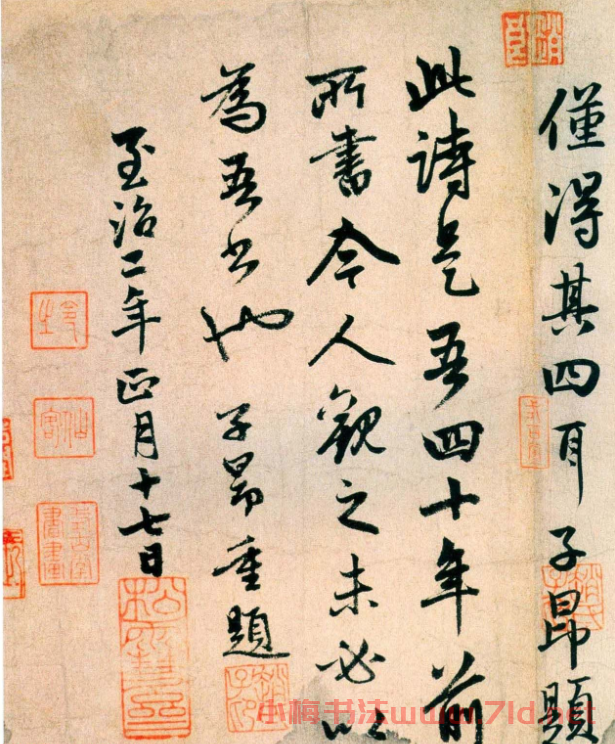 僅得其四耳子昂題
此詩是吾四十年前
所書今人觀之未必以
為吾書也子昂重題
至治二年正月十七日
小梅书法www.7ld.net